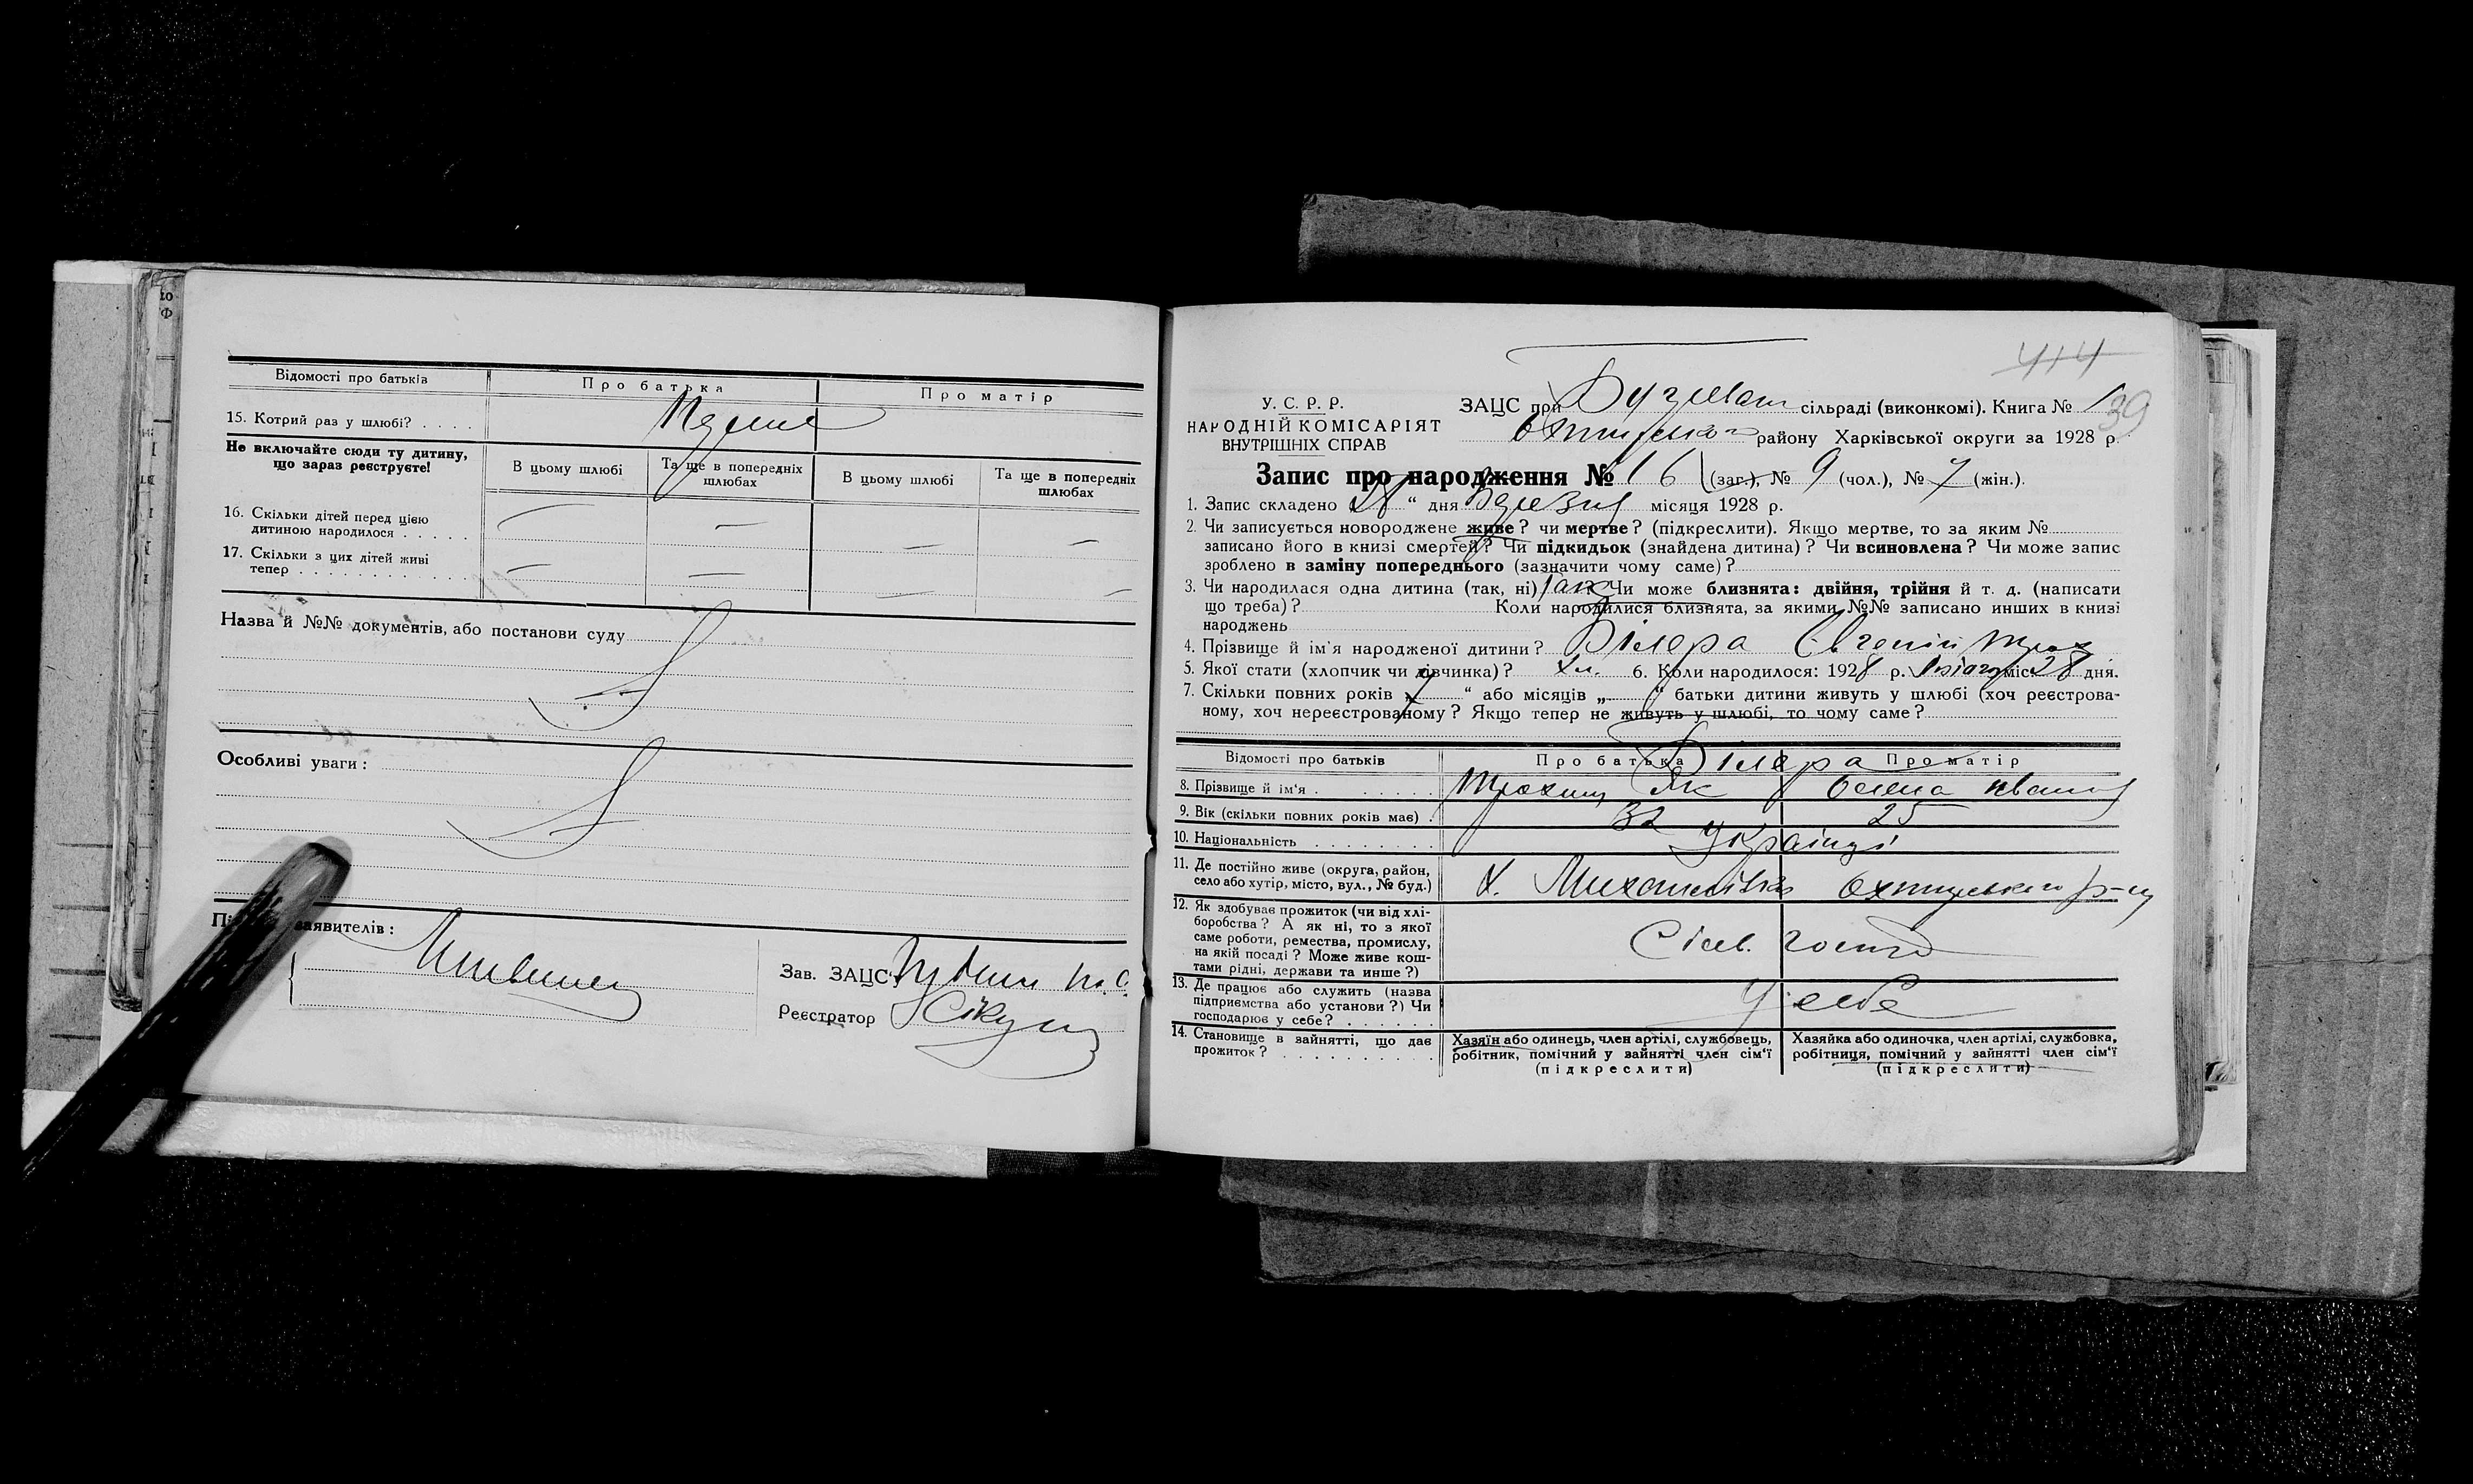 Відомості про батьків
Про батька
Про матір
15. Котрий раз у шлюбі? . . . .
Не включайте сюди ту дитину,
що зараз реєструєте!
В цьому шлюбі
Та ще в попередніх
шлюбах
В цьому шлюбі
Та ще в попередніх
шлюбах
16. Скільки дітей перед цією
дитиною народилося . . . . .
— — — —
17. Скільки з цих дітей живі
тепер . . . . . . . . . . . .
— — — —
Назва й №№ документів, або постанови суду
Особливі уваги:
заявителів:
Зав. ЗАЦС
Реєстратор
414
39
У. С. Р. Р.
НАРОДНІЙ КОМІСАРІЯТ
ВНУТРІШНІХ СПРАВ
ЗАЦС при сільраді (виконкомі). Книга № 1
району Харківської округи за 1928 р.
Запис про народження № 16 (заг.), № 9 (чол.), № 7 (жін.).
1. Запис складено " дня місяця 1928 р.
2. Чи записується новороджене живе? чи мертве? (підкреслити). Якщо мертве, то за яким №
записано його в книзі смертей? Чи підкидьок (знайдена дитина)? Чи всиновлена? Чи може запис
зроблено в заміну попереднього (зазначити чому саме)?
3. Чи народилася одна дитина (так, ні) Так Чи може близнята: двійня, трійня й т. д. (написати
що треба)? Коли народилися близнята, за якими №№ записано инших в книзі
народжень
4. Прізвище й ім'я народженої дитини? Білера Євгеній Трох
5. Якої стати (хлопчик чи дівчинка)? хл. 6. Коли народилося: 1928 р. міс 28 дня.
7. Скільки повних років „ " або місяців „ " батьки дитини живуть у шлюбі (хоч реєстрова-
ному, хоч нереєстрованому? Якщо тепер не живуть у шлюбі, то чому саме?
Відомості про батьків
Про батька
Про матір
Білера
8. Прізвище й ім'я . . . . . . . Трохим Як Олена Іванів
9. Вік (скільки повних років має) . 32 25
10. Національність . . . . . . . . Українці
11. Де постійно живе (округа, район,
село або хутір, місто, вул., № буд.)
х. Михайлівка Охтирського р-ну
12. Як здобуває прожиток (чи від хлі-
боробства? А як ні, то з якої
саме роботи, ремества, промислу,
на якій посаді? Може живе кош-
тами рідні, держави та инше?)
Сільв. госпд
13. Де працює або служить (назва
підприємства або установи?) Чи
господарює у себе? . . . . . .
У себе
14. Становище в зайнятті, що дає
прожиток? . . . . . . . . . .
Хазяїн або одинець, член артілі, службовець,
робітник, помічний у зайнятті член сім'ї
(підкреслити)
Хазяйка або одиночка, член артілі, службовка,
робітниця, помічний у зайнятті член сім'ї
(підкреслити)